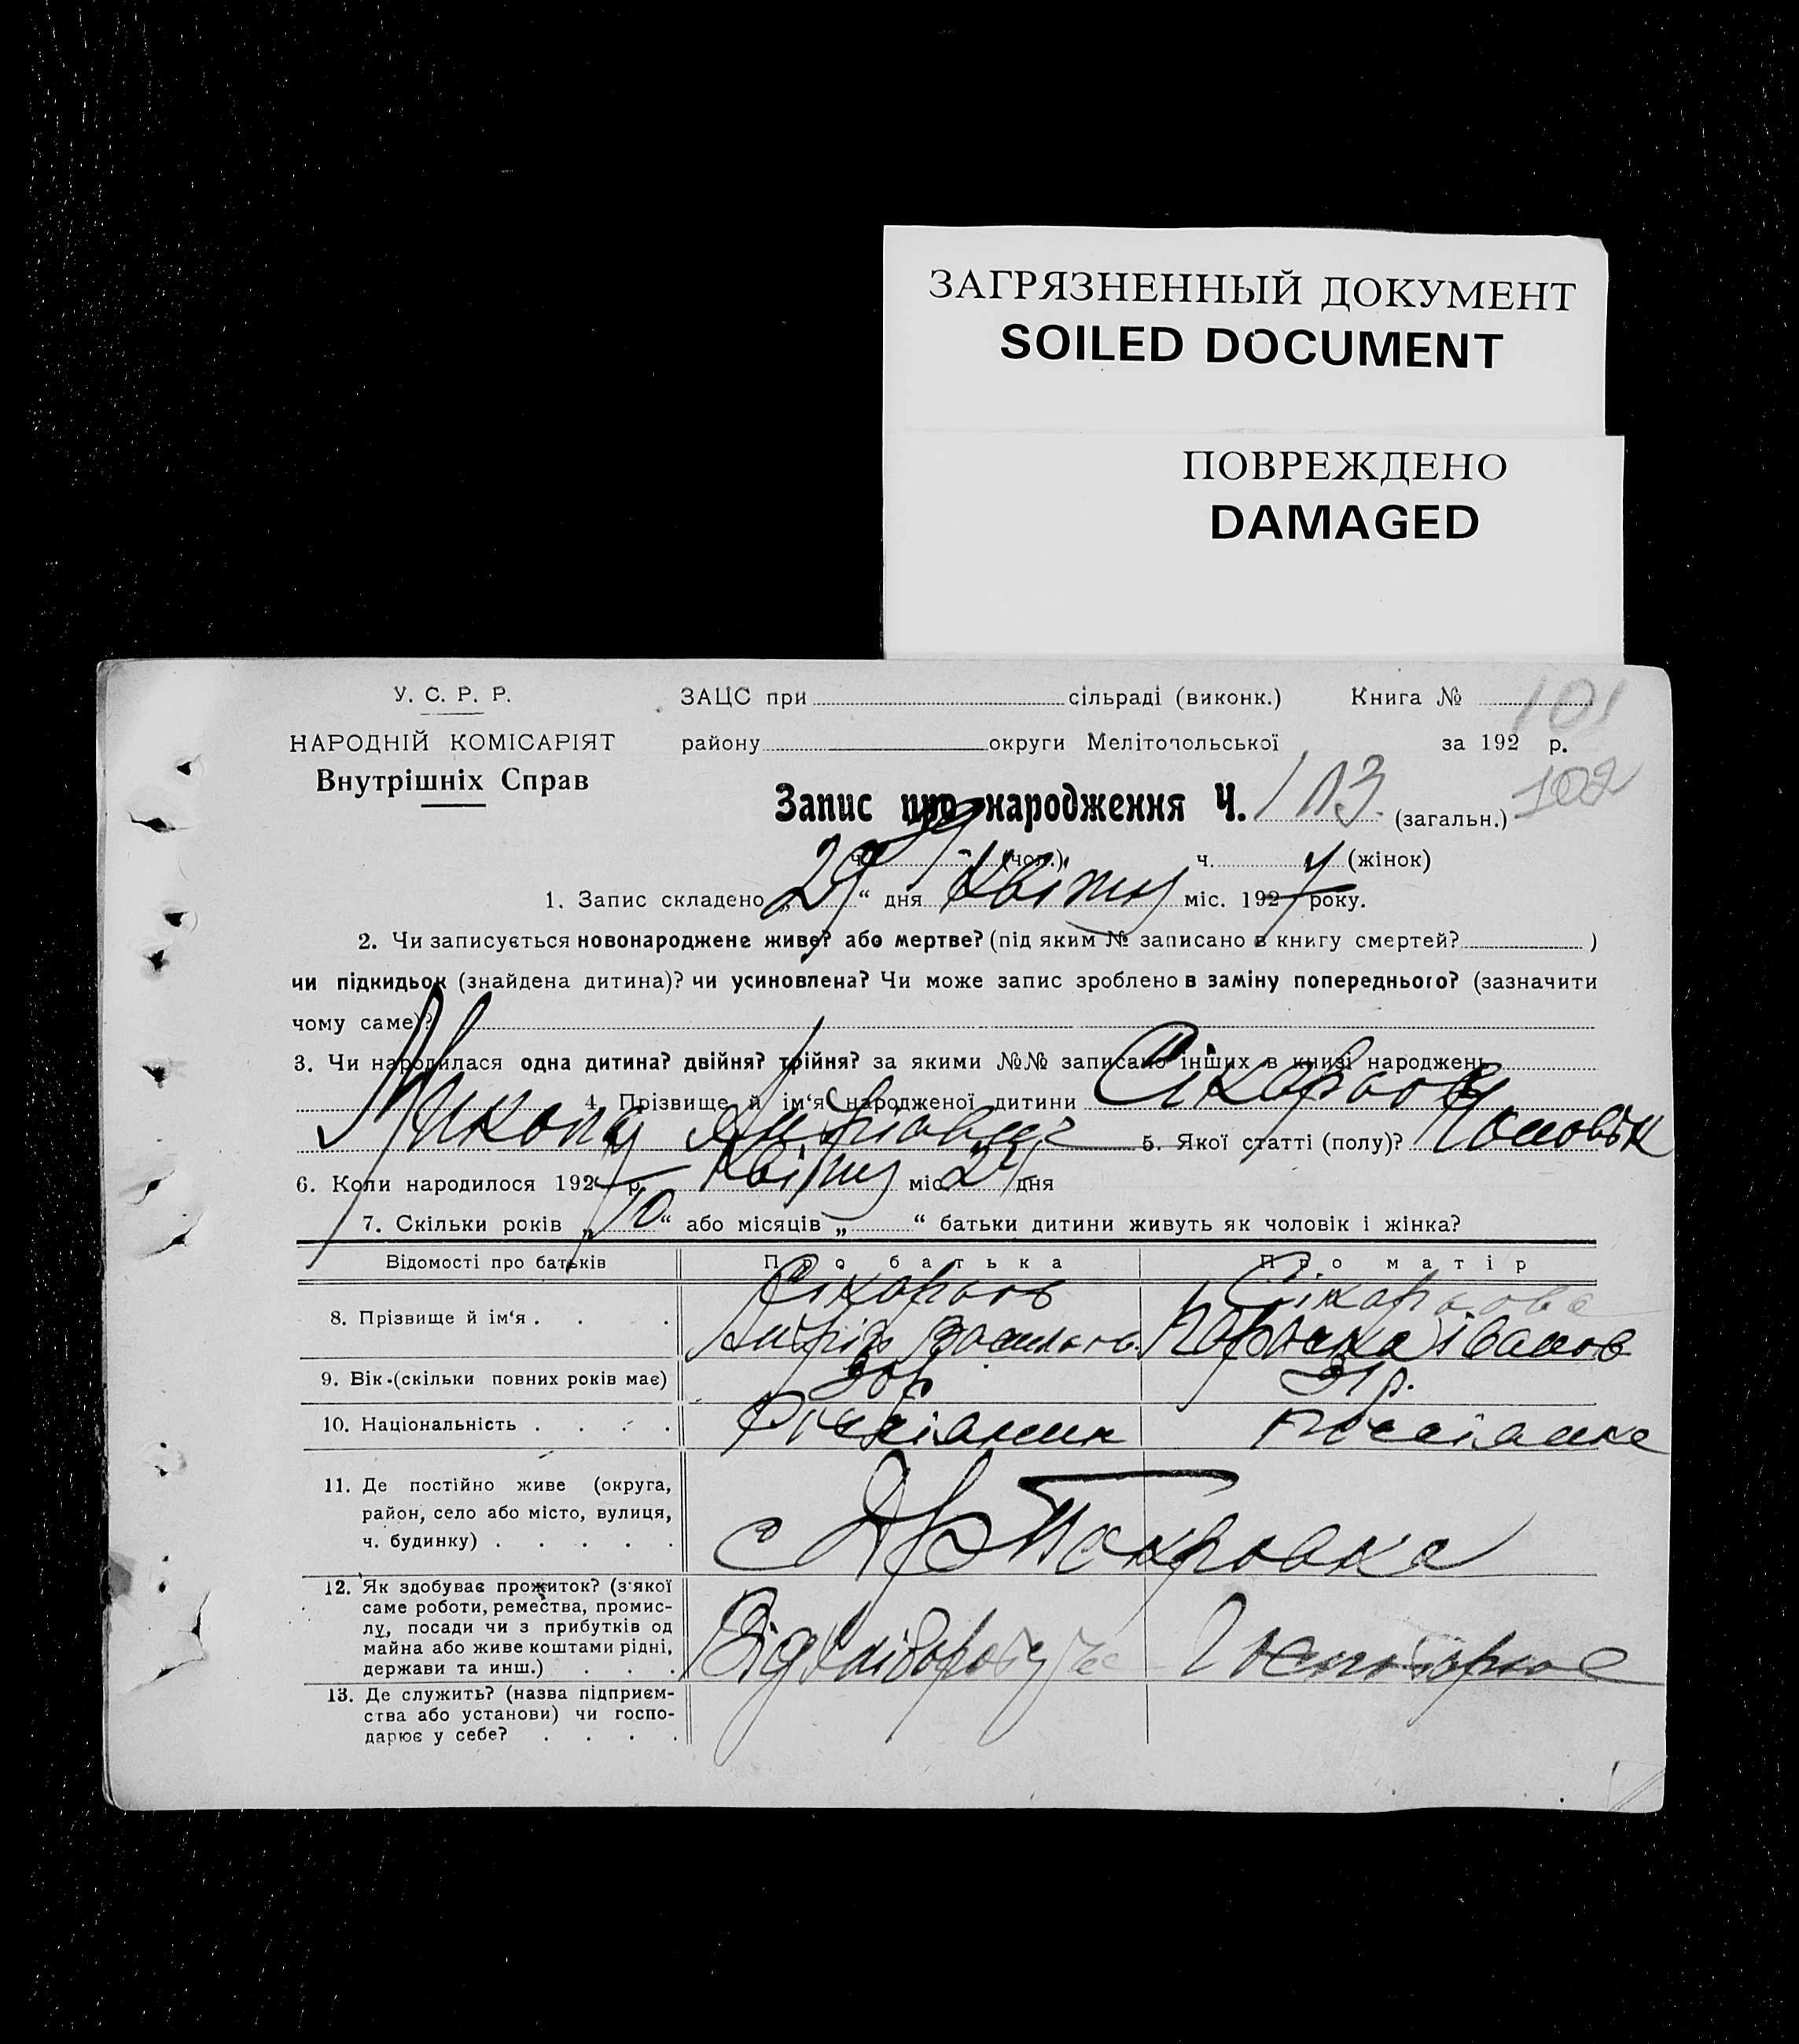 ЗАГРЯЗНЕННЫЙ ДОКУМЕНТ
SOILED DOCUMENT
ПОВРЕЖДЕНО
DAMAGED
У. С. Р. Р.
НАРОДНІЙ КОМІСАРІЯТ
Внутрішніх Справ
ЗАЦС при сільраді (виконк.) Книга № 101
району округи Мелітопольської за 192 р.
102
Запис про народження Ч. 113 (загальн.)
ч. (чол.) ч. (жінок)
1. Запис складено „29“ дня Квітня міс. 1927 року.
2. Чи записується новонароджене живе? або мертве? (під яким № записано в книгу смертей? )
чи підкидьок (знайдена дитина)? чи усиновлена? Чи може запис зроблено в заміну попереднього? (зазначити
чому саме)?
3. Чи народилася одна дитина? двійня? трійня? за якими №№ записано інших в книзі народжень
4. Прізвище й ім‘я народженої дитини Сікорьов
Микола 5. Якої статті (полу)? Чоловік
6. Коли народилося 1927 р. Квітня міс. 24 дня
7. Скільки років „10“ або місяців „ “ батьки дитини живуть як чоловік і жінка?
Відомості про батьків Про батька Про матір
8. Прізвище й ім‘я . . . Сікорьов Сікорьова
Андрій Іванов
9. Вік (скільки повних років має) 30р 31р.
10. Національність . . . .
11. Де постійно живе (округа,
район, село або місто, вулиця,
ч. будинку) . . . . . с Покровка
12. Як здобуває прожиток? (з якої
саме роботи, ремества, промис-
лу, посади чи з прибутків од
майна або живе коштами рідні,
держави та инш.) . . . Від
13. Де служить? (назва підприєм-
ства або установи) чи госпо-
дарює у себе? . . . .